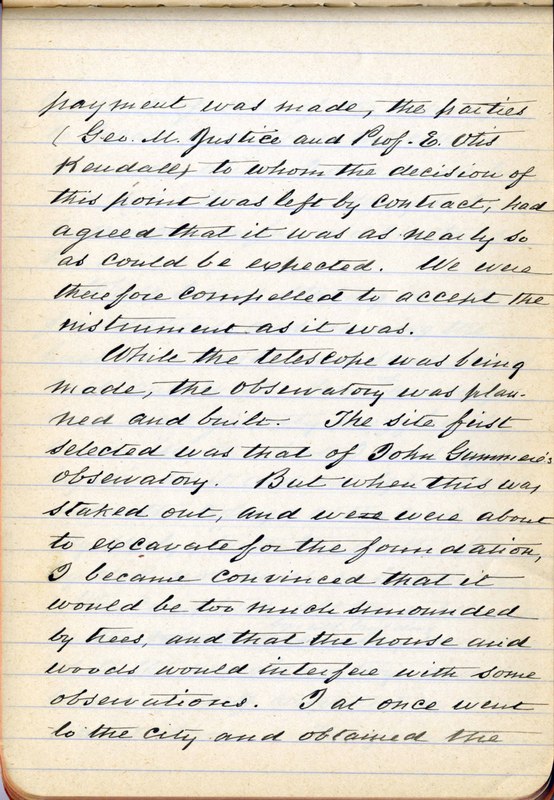 payment was made, the parties
(Geo. M. Justice and Prof. E. Otis
Kendall) to whom the decision of
this point was left by contract, had
agreed that it was as nearly so
as could be expected. We were
therefore compelled to accept the
instrument as it was.
While the telescope was being
made, the observatory was plan-
ned and built. The site first
selected was that of John Gummere's
observatory. But when this was
staked out, and were were about
to excavate for the foundation,
I became convinced that it
would be too much surrounded
by trees, and that the house and
woods would interfere with some
observations. I at once went
to the city and obtained the